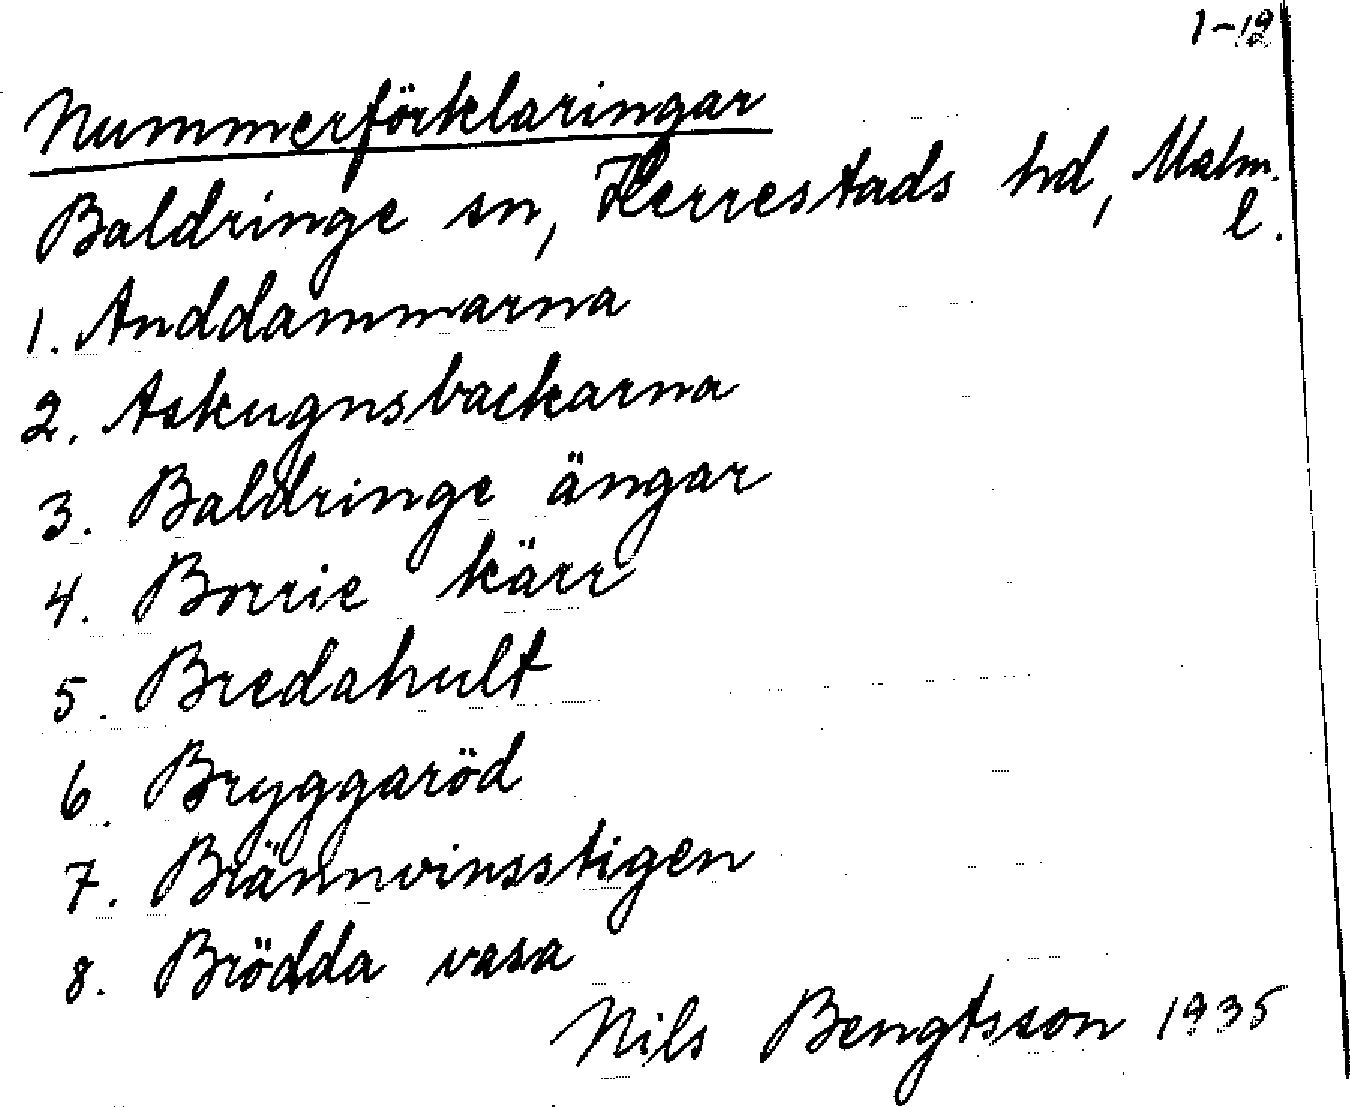 1-12
Nummerförklaringar
Baldringe sn, Herrestads hd, Malm.
l.
1. Anddammarna
2. Askugnsbackarna
3. Baldringe ängar
4. Borrie kärr
5. Bredahult
6. Bryggaröd
7. Brännvinsstigen
8. Brödda vasa
Nils Bengtsson 1935